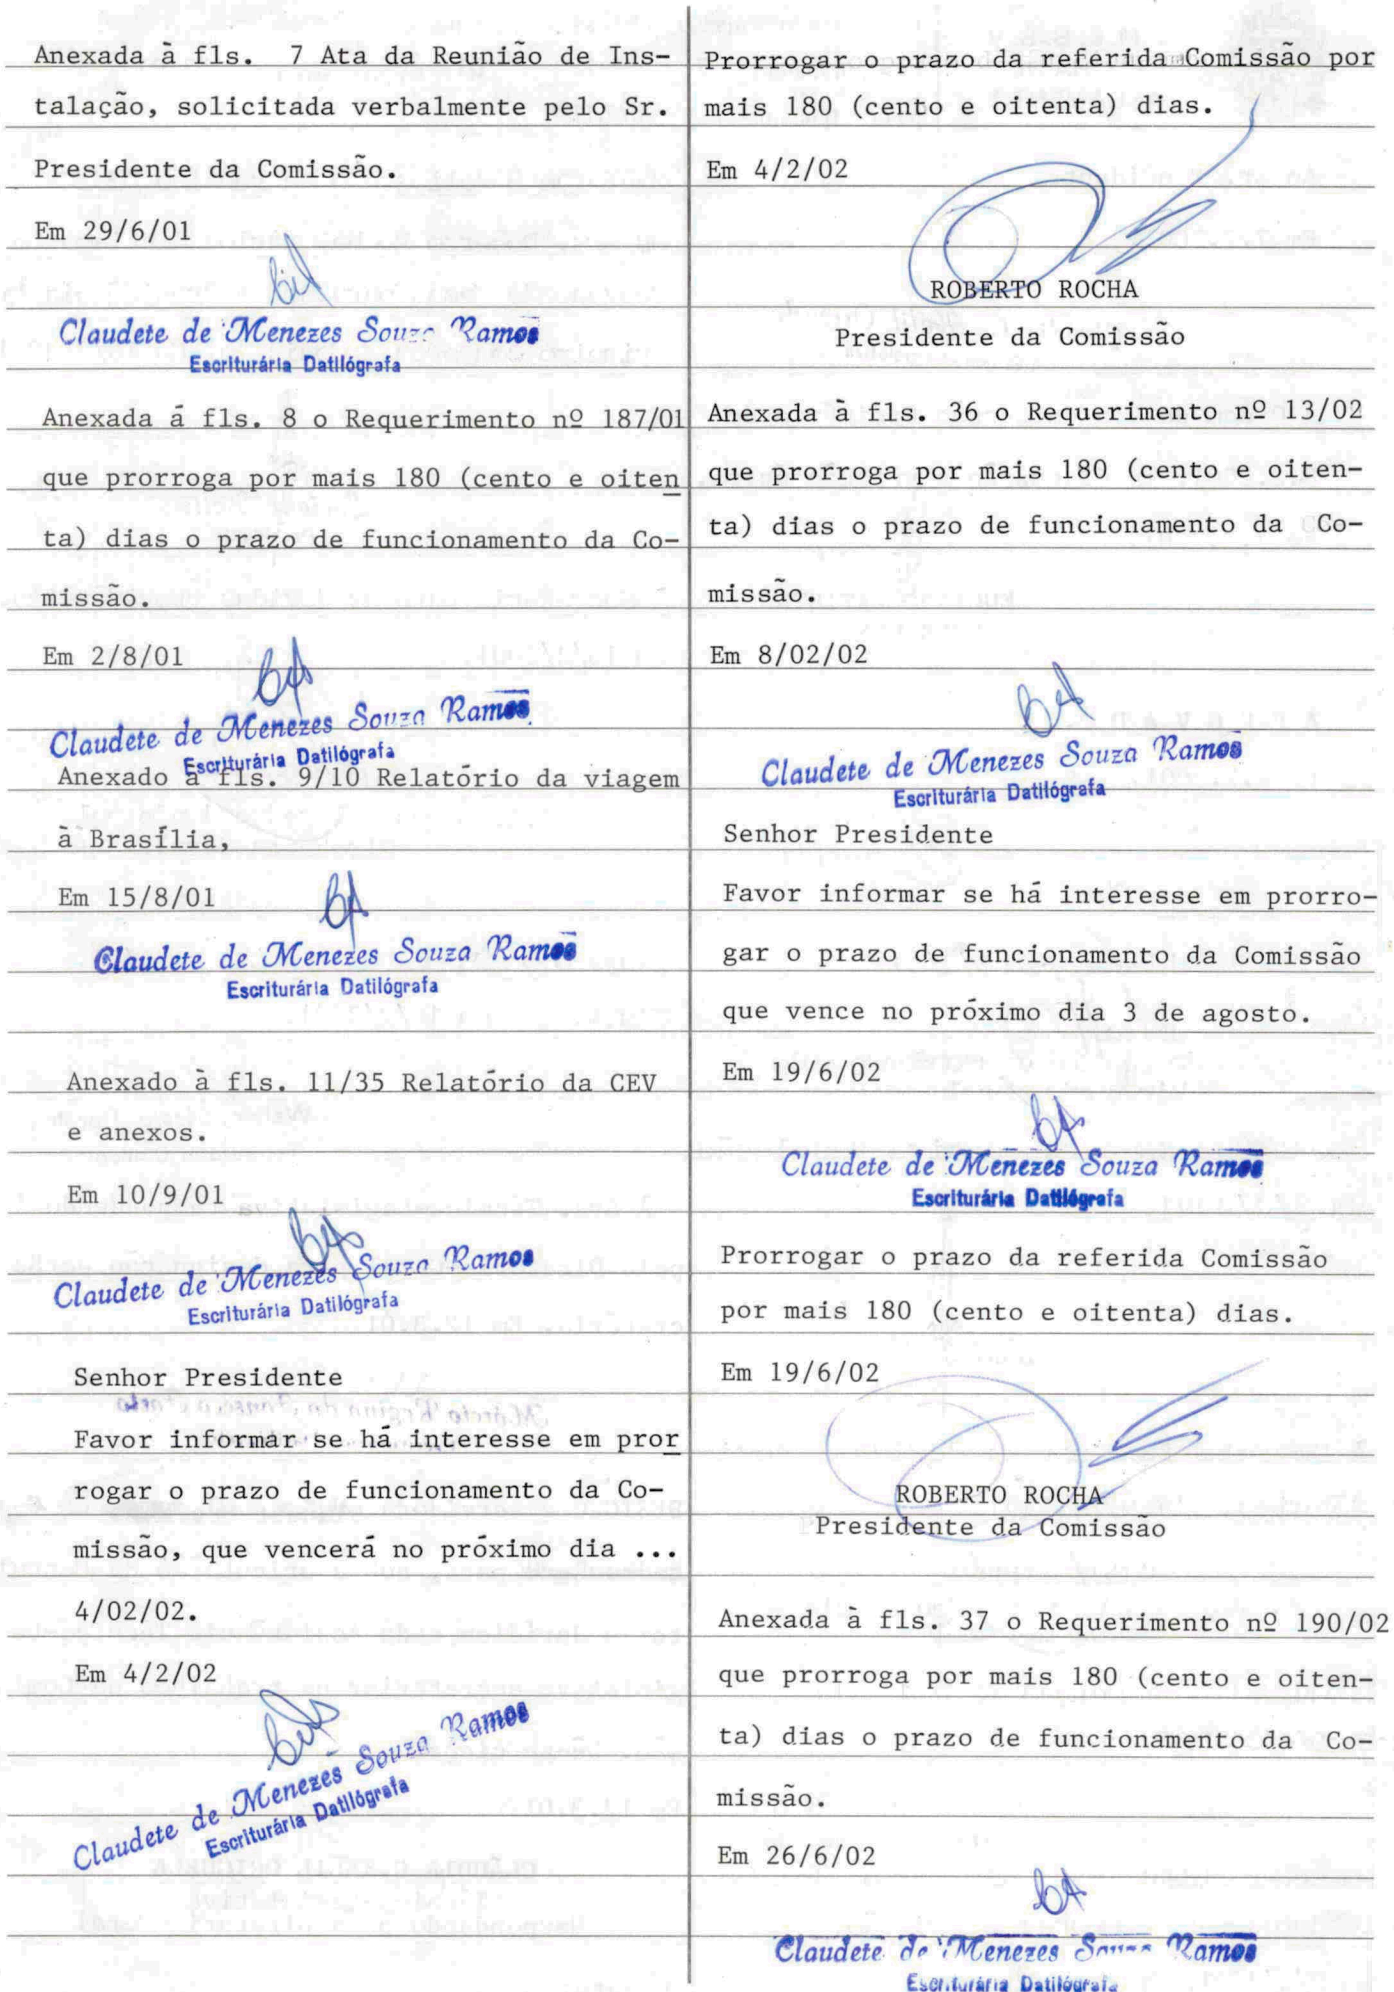 Anexada à fls. 7 Ata da Reunião de Ins-
talação, solicitada verbalmente pelo Sr.
Presidente da Comissão.
Em 29/6/01
Claudete de Menezes Souza Ramos
Escriturária Datilógrafa
Anexada á fls. 8 o Requerimento nº 187/01
que prorroga por mais 180 (cento e oiten
ta) dias o prazo de funcionamento da Co-
missão.
Em 2/8/01
Claudete de Menezes Souza Ramos
Escriturária Datilógrafa
Anexado à fls. 9/10 Relatório da viagem
à Brasília,
Em 15/8/01
Claudete de Menezes Souza Ramos
Escriturária Datilógrafa
Anexado à fls. 11/35 Relatório da CEV
e anexos.
Em 10/9/01
Claudete de Menezes Souza Ramos
Escriturária Datilógrafa
Senhor Presidente
Favor informar se há interesse em pror
rogar o prazo de funcionamento da Co-
missão, que vencerá no próximo dia ...
4/02/02.
Em 4/2/02
Claudete de Menezes Souza Ramos
Escriturária Datilógrafa
Prorrogar o prazo da referida Comissão por
mais 180 (cento e oitenta) dias.
Em 4/2/02
ROBERTO ROCHA
Presidente da Comissão
Anexada à fls. 36 o Requerimento nº 13/02
que prorroga por mais 180 (cento e oiten-
ta) dias o prazo de funcionamento da Co-
missão.
Em 8/02/02
Claudete de Menezes Souza Ramos
Escriturária Datilógrafa
Senhor Presidente
Favor informar se há interesse em prorro-
gar o prazo de funcionamento da Comissão
que vence no próximo dia 3 de agosto.
Em 19/6/02
Claudete de Menezes Souza Ramos
Escriturária Datilógrafa
Prorrogar o prazo da referida Comissão
por mais 180 (cento e oitenta) dias.
Em 19/6/02
ROBERTO ROCHA
Presidente da Comissão
Anexada à fls. 37 o Requerimento nº 190/02
que prorroga por mais 180 (cento e oiten-
ta) dias o prazo de funcionamento da Co-
missão.
Em 26/6/02
Claudete de Menezes Souza Ramos
Escriturária Datilógrafa